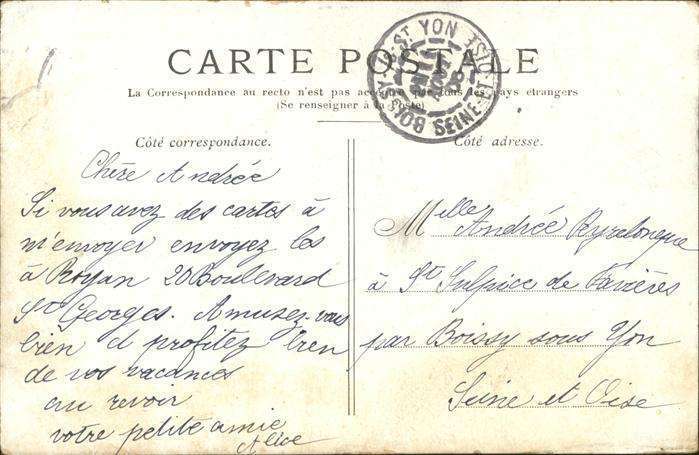 CARTE POSTALE
La Correspondance au recto n'est pas acceptée par tous les pays étrangers
(Se renseigner à la Poste)
Côté correspondance.
Côté adresse.
BOISSY-S-ST YON SEINE-ET-OISE
Chère Andrée
Si vous avez des cartes à
m'envoyer envoyez les
à Royan 20 Boulevard
St Georges. Amusez-vous
bien et profitez bien
de vos vacances
au revoir
votre petite amie
Alice
Melle Andrée
à St Sulpice de Favières
par Boissy sous Yon
Seine et Oise